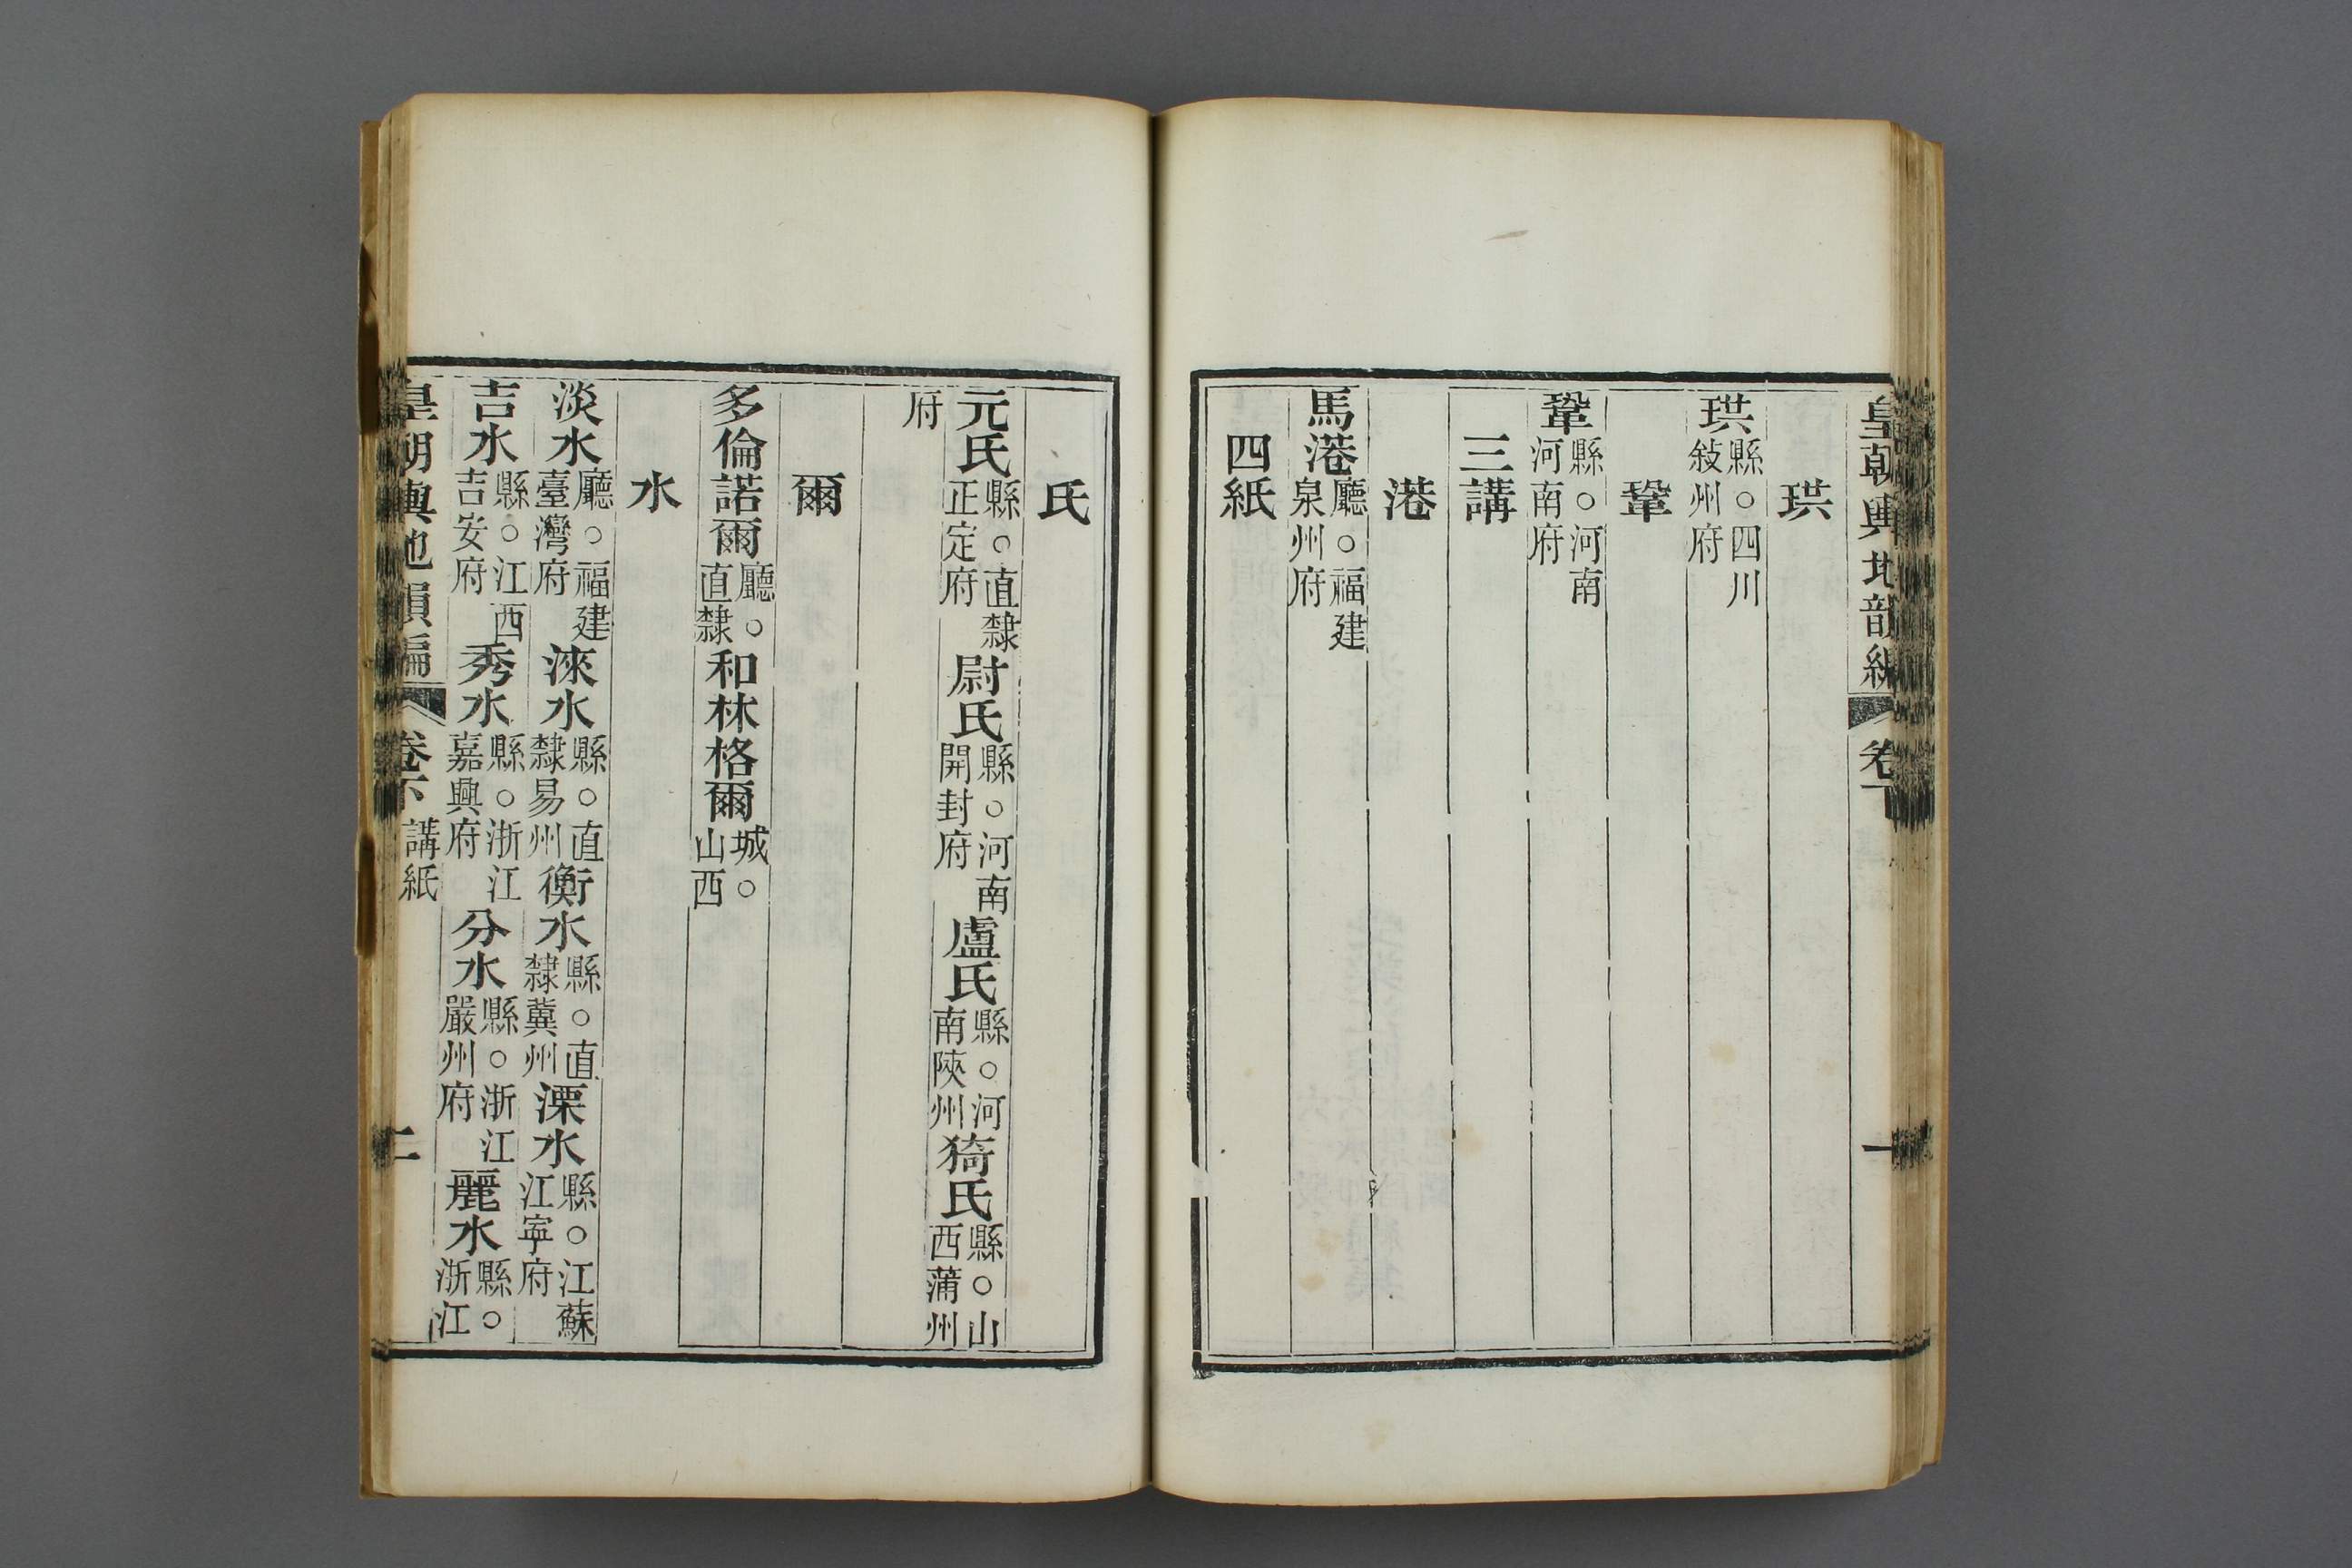 皇朝輿地韻編 卷下 一
珙
珙縣○四川敍州府
鞏
鞏縣○河南河南府
三講
港
馬港廳○福建泉州府
四紙
氏
元氏縣○直隸正定府 尉氏縣○河南開封府 盧氏縣○河南陝州 猗氏縣○山西蒲州
府
爾
多倫諾爾廳○直隸 和林格爾城○山西
水
淡水廳○福建臺灣府 淶水縣○直隸易州 衡水縣○直隸冀州 溧水縣○江蘇江寧府
吉水縣○江西吉安府 秀水縣○浙江嘉興府 分水縣○浙江嚴州府 麗水縣○浙江
皇朝輿地韻編 卷下 講紙 二